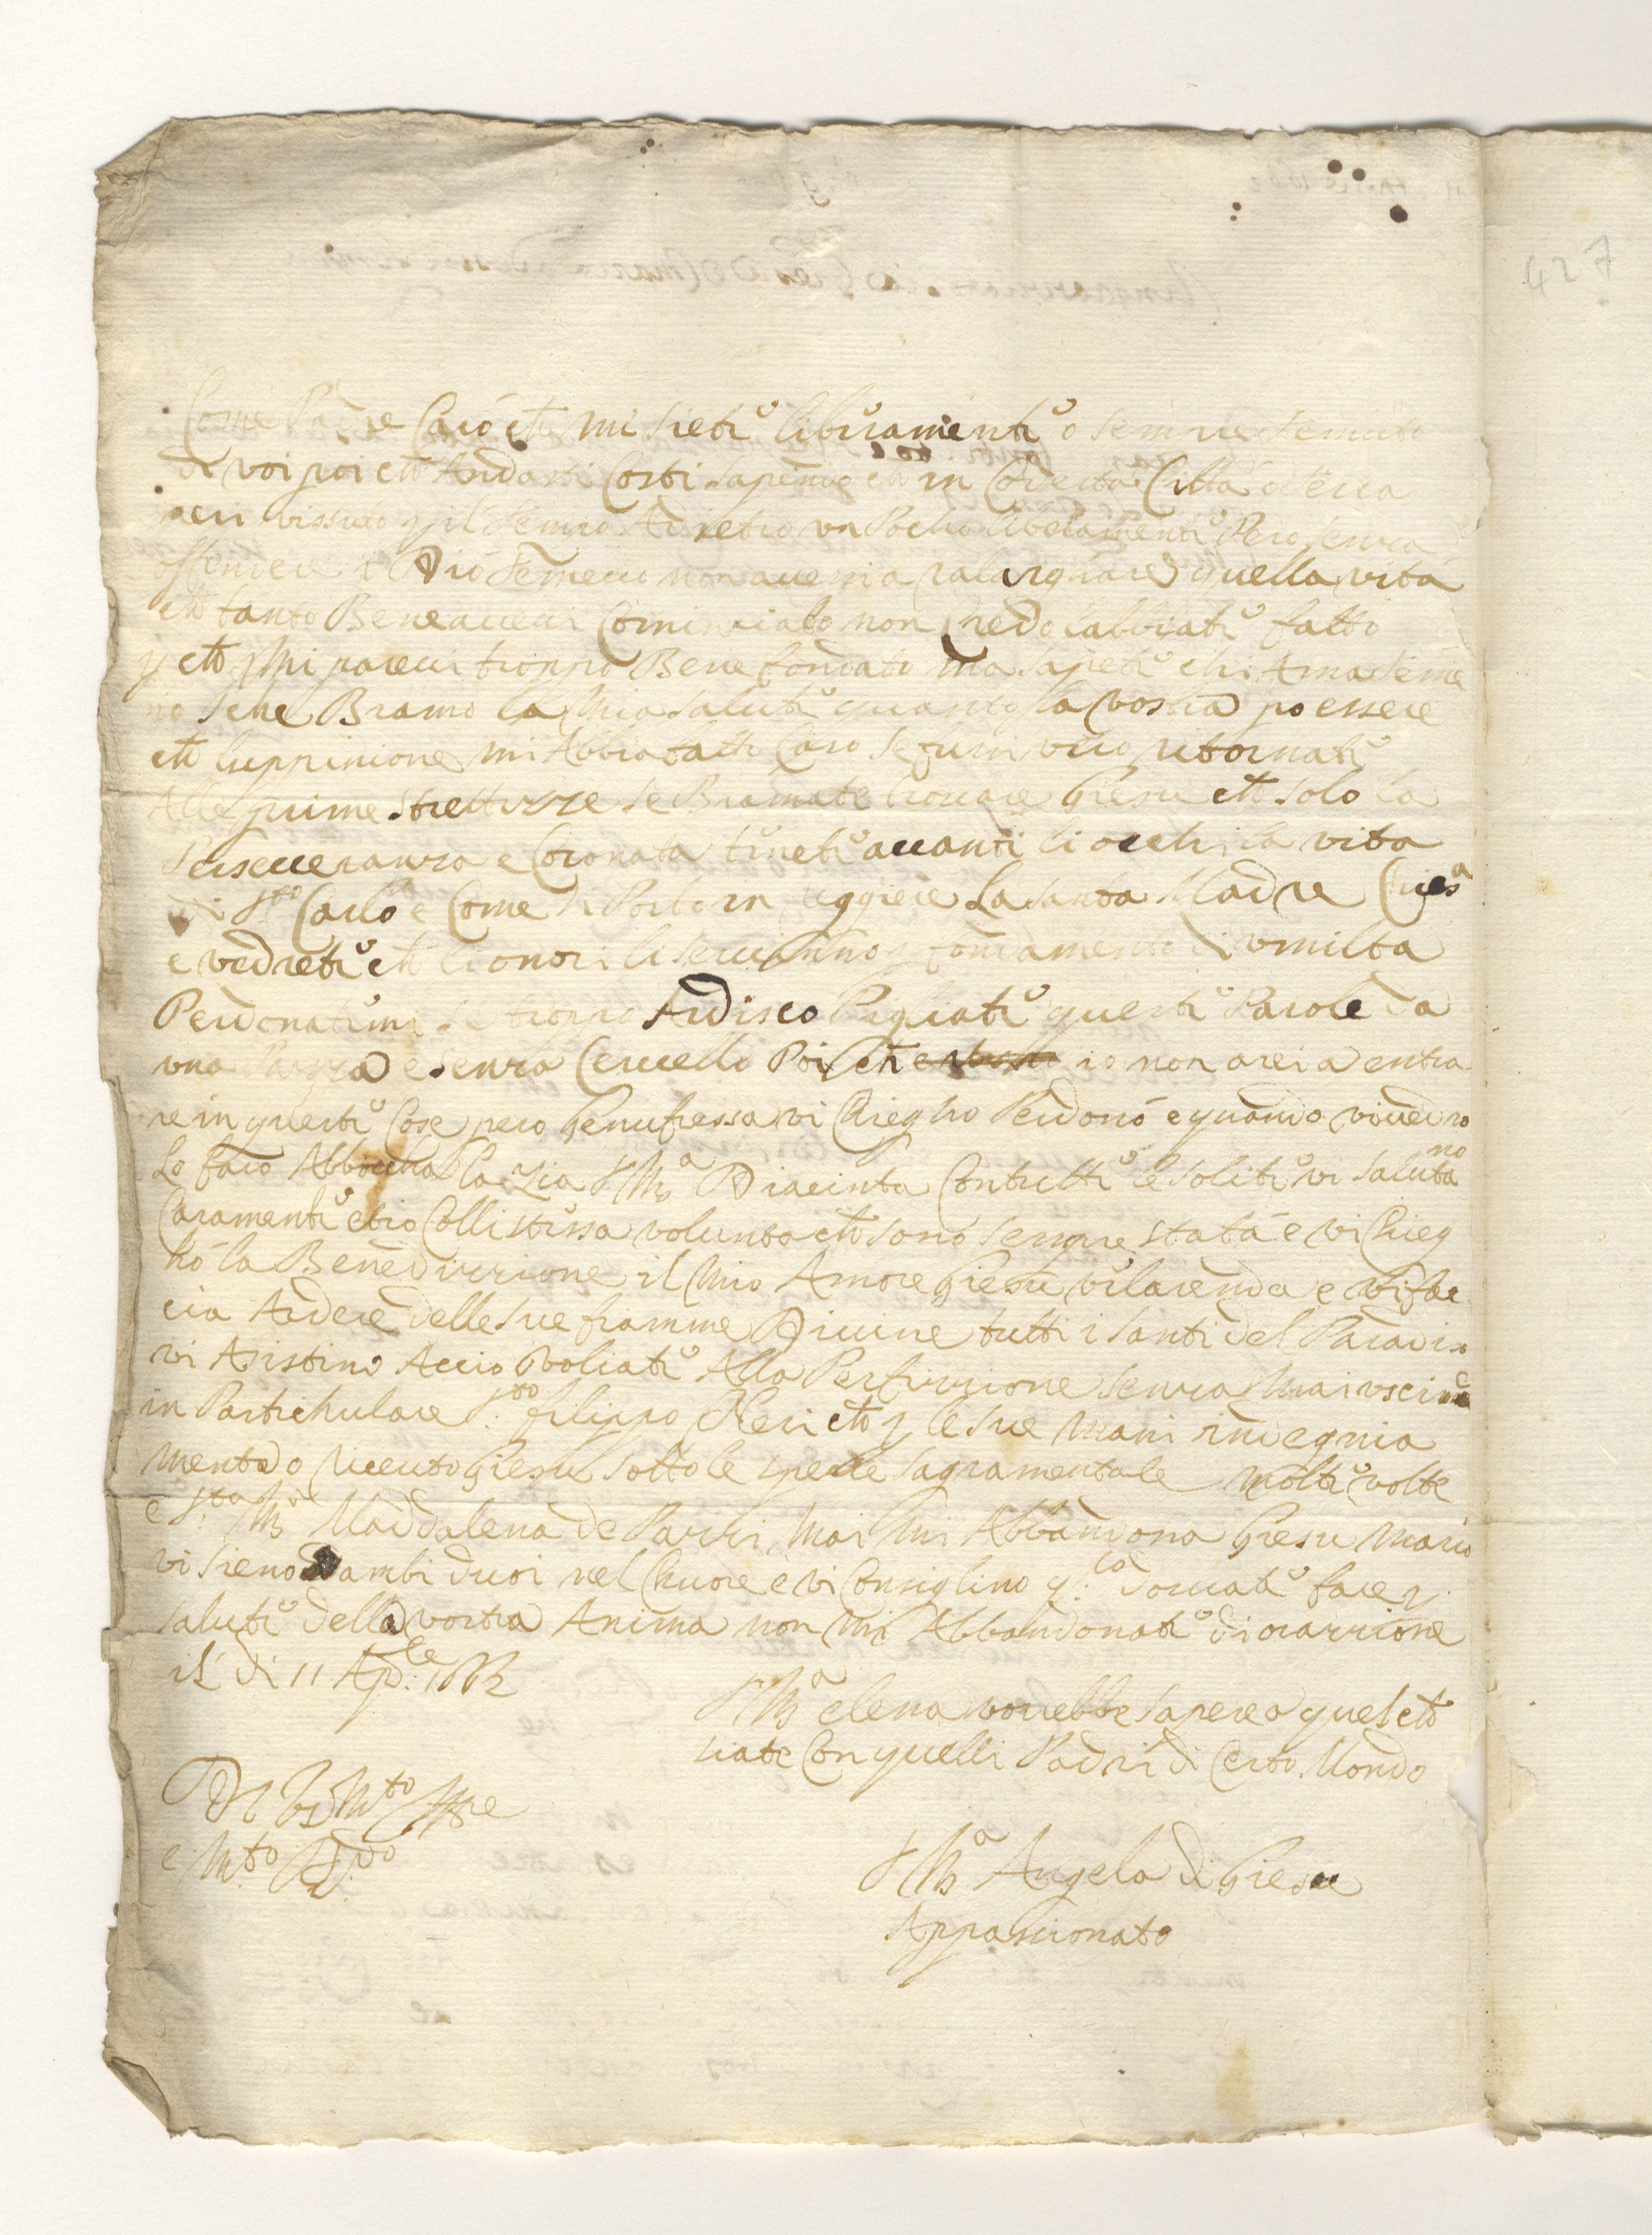 427
Come Padre Caro che mi siete liberamente o sempre temuto
di voi poi che Andasti Costi sapendo che in Codesta Città
vissuto p il tempo Adietro un Pocho liberamente Pero senza
offendere Dio Temevo non avessi a ralargnare quella vita
che tanto Bene avevi Cominciato non Credo labbiate fatto
p che mi parevi troppo Bene fondato Ma sapete chi Ama teme
io che Bramo la Mia salute quanto la vostra po essere
che luppinione mi Abbia fatto Caso se fussi vero ritornate
Alle prime strettezze se Bramate trovare Giesu che solo la
Perseveranza e Coronata tenete avanti li occhi la vita
di S.to Carlo e Come si Porto in reggiere La santa Madre Chiesa
e vedrete che li onori li servinno p fondamento di vmilta
Perdonatemi se troppo Ardisco Pigliate queste Parole da
una Pazza e senza Cervello Poi che io non arei a entra
re in queste Cose pero Genufressa vi Chiegho Perdono e quando vi vedro
Lo faro Abboccha la Zia S M.a Diacinta Con tutte le solite vi salutano
Caramente e io Collistessa volunta che sono sempre stata e vi Chieg
ho la Benedizzione il Mio Amore Giesu vi larenda e vi fac
cia Ardere delle sue fiamme Divine tutti i santi del Paradiso
vi Asistino Accio voliate Alla Perfezzione senza Mai uscirne
in Partichulare S.to Filippo Neri che p le sue Mani indegnia
mente o riceuto Giesu sotto le spezie sagramentale Molte volte
e S.ta M.a Maddalena de Pazzi, Mai Mi Abbandona Giesu Maria
vi sieno Dambi duoi nel Chuore e vi Consiglino q.to dovate fare p
salute della vostra Anima non Mi Abbandonate di orazzione
il di 11 Ap.le
S M.a elena vorrebbe sapere a quel che
siate Con quelli Padri di Certo Mondo
Di V S M.to Ill.re
e M.to R.do
S M.a Angela di Giesu
Appasionato